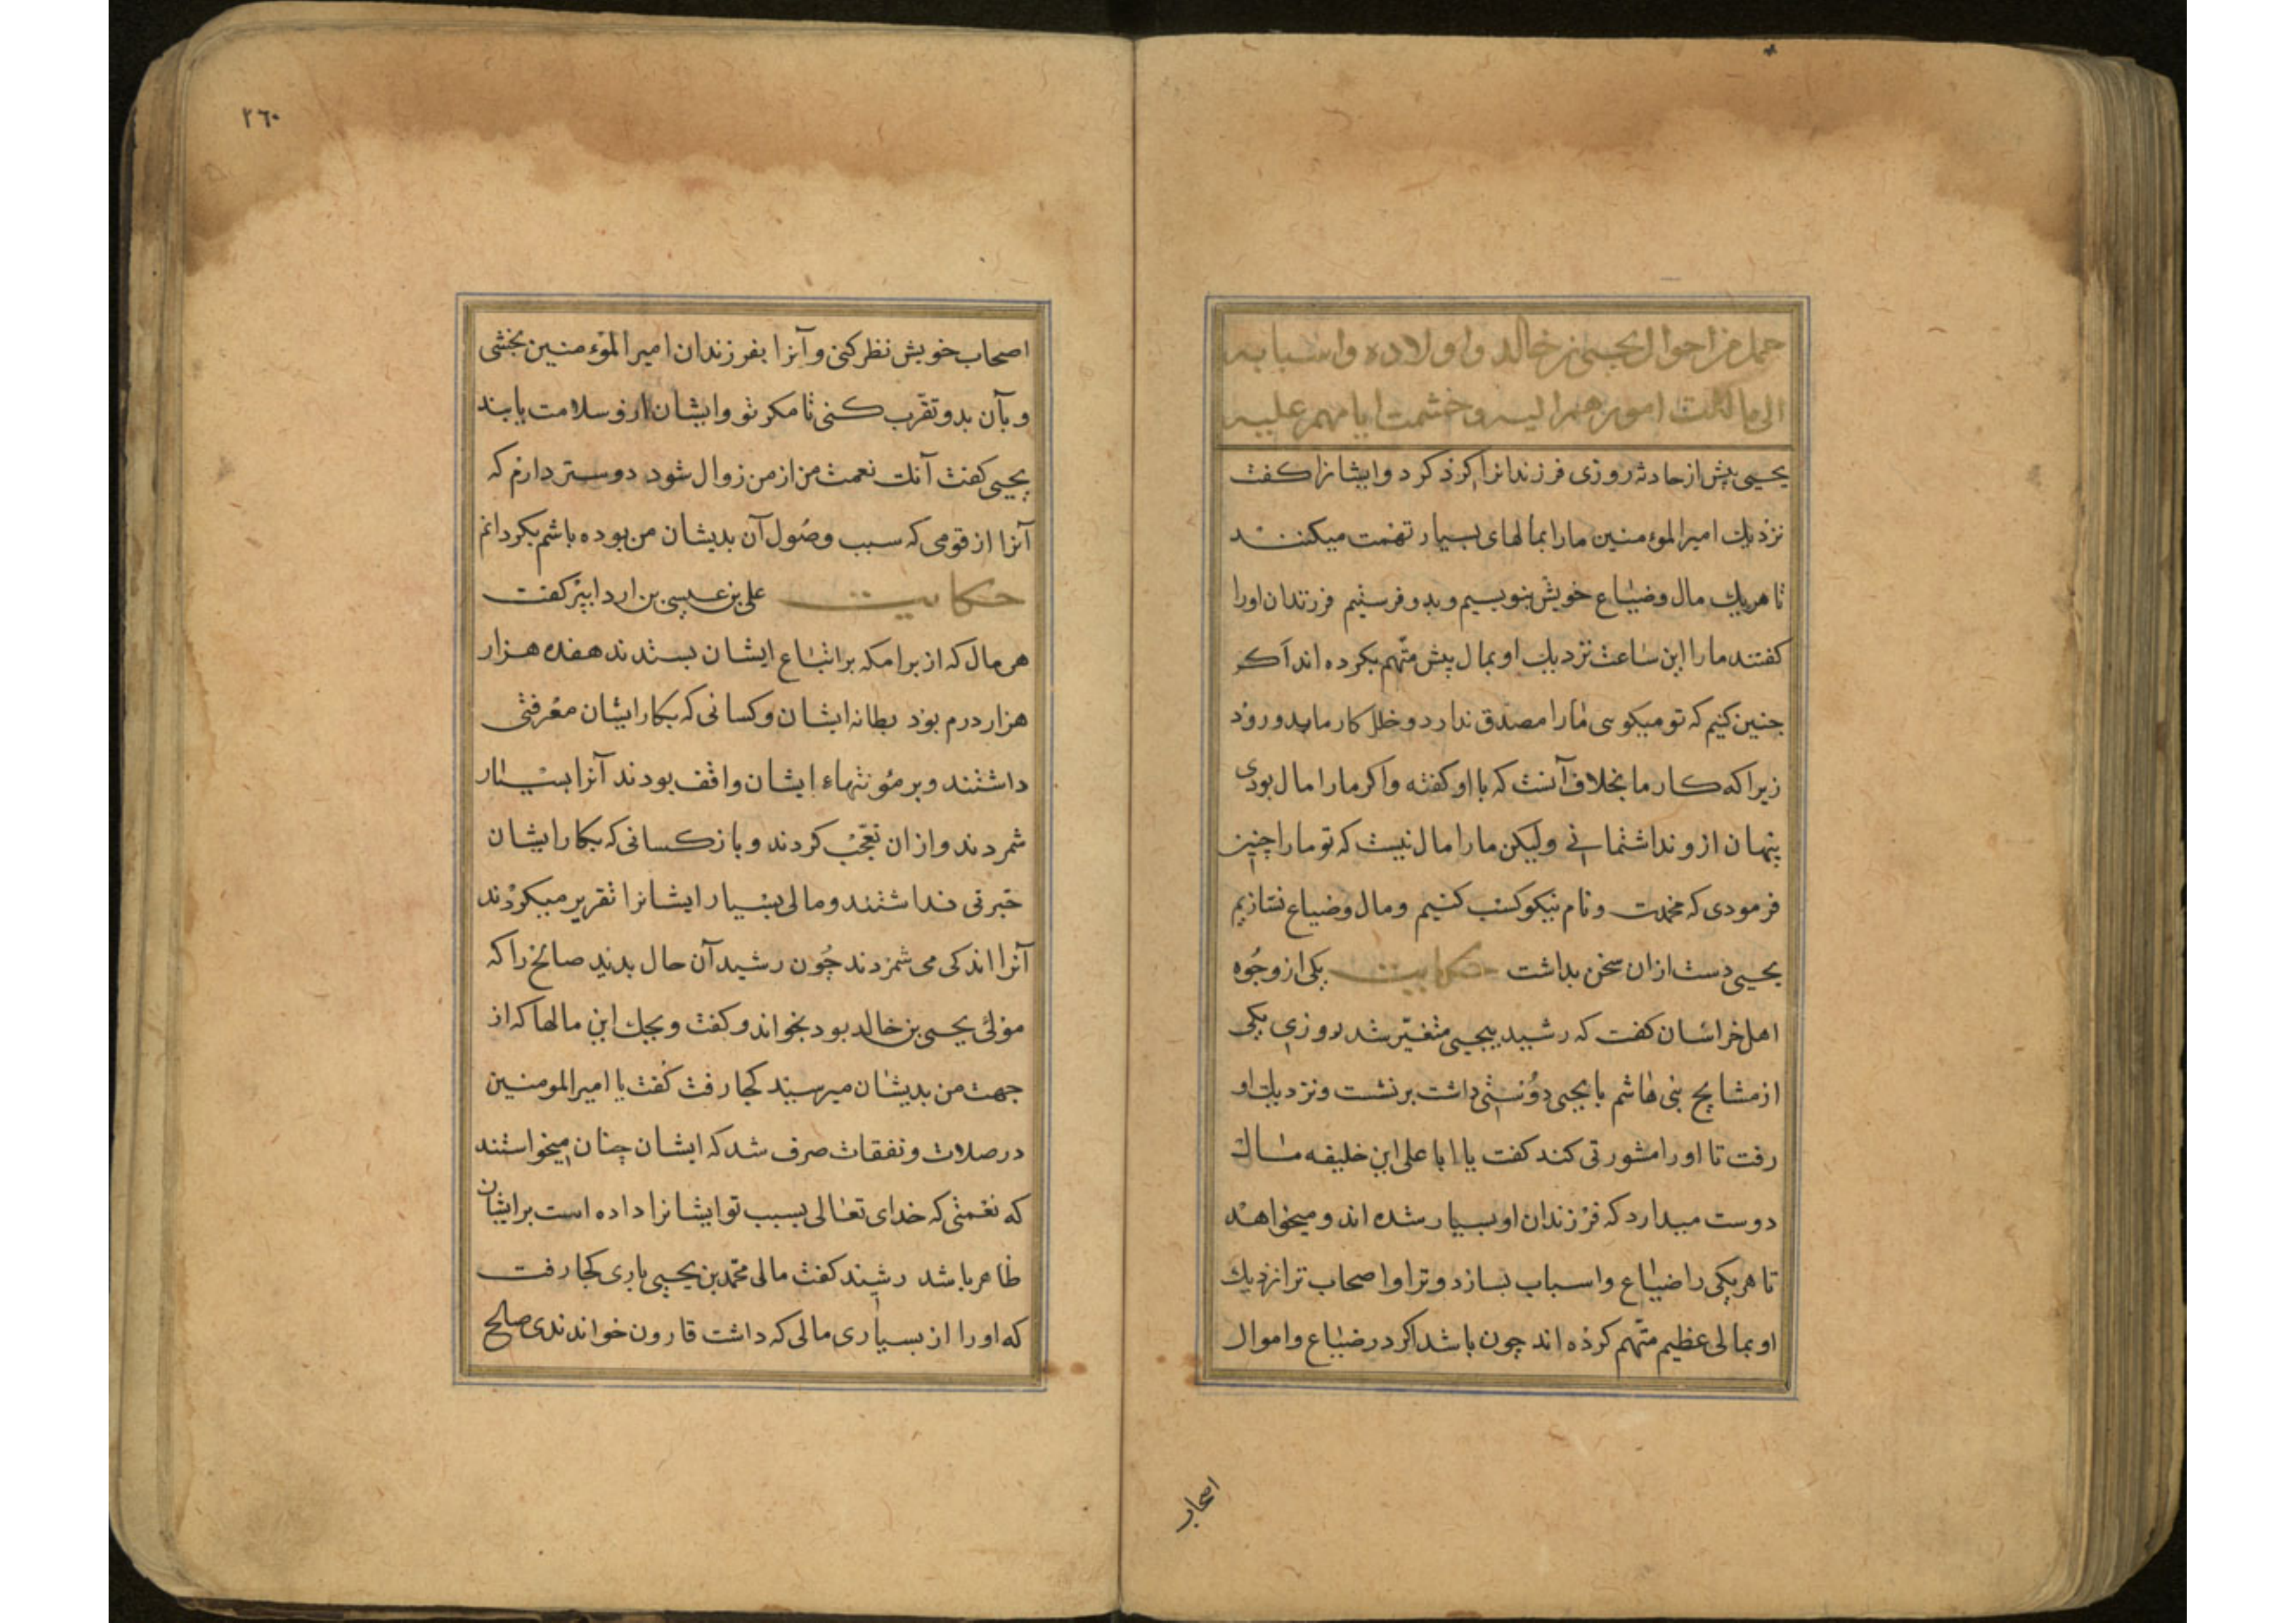 جمل من احوال یحیی بن خالد واولاده واسبابه
الی ما آلت امورهم الیه وختمت ایامهم علیه
یحیی پیش از حادثه روزی فرزندانرا کرذ کرد وایشانرا کفت
نزدیك امیر المؤمنین مارا بمالهای بسیار تهمت میکنند
تا هریك مال وضیاع خویش بنویسیم وبدو فرستیم فرزندان اورا
کفتند مارا این ساعت نزدیك او بمال پیش متّهم بکرده اند اکر
جنین کنیم که تو میکوسی مارا مصدّق ندارد وخلل کار ما بدو روذ
زیرا که کار ما بخلاف آنست که با او کفته واکر مارا مال بودی
پنهان ازو نداشتمانی ولیکن مارا مال نیست که تو مارا چنین
فرمودی که محمدت ونام نیکو کسب کنیم ومال وضیاع نسازیم
یحیی دست ازان سخن بداشت حکایت یکی از وجوه
اهل خراسان کفت که رشید بیحیی متغیّر شد روزی یکی
از مشایخ بنی هاشم با یحیی دوستی داشت برنشست ونزدیك او
رفت تا اورا مشورتی کند کفت یا ابا علی این خلیفه مال
دوست میدارد که فرزندان او بسیار شده اند ومیخواهد
تا هریکی را ضیاع واسباب بسازد وترا واصحاب ترا نزدیك
او بمالی عظیم متّهم کرذه اند چون باشد اکر در ضیاع واموال
اصحاب
٢٦٠
اصحاب خویش نظر کنی وآنرا بفرزندان امیر المؤمنین بخشی
وبآن بدو تقرّب کنی تا مکر تو وایشان ازو سلامت یابند
یحیی کفت آنك نعمت من از من زوال شود دوستر دارم که
آنرا از قومی که سبب وصول آن بدیشان من بوده باشم بکردانم
حکایت علی بن عیسی بن ارداپیز کفت
هر مال که از برامکه بر اتباع ایشان بستدند هفده هزار
هزار درم بوذ بطانه ایشان وکسانی که بکار ایشان معرفتی
داشتند وبر مؤنتهاء ایشان واقف بودند آنرا بسیار
شمردند وازان تعجّب کردند وباز کسانی که بکار ایشان
خبرتی نداشتند ومالی بسیار ایشانرا تقریر میکردند
آنرا اندکی می شمزدند چون رشید آن حال بدید صالح را که
مولی یحیی بن خالد بود بخواند وکفت ویحك این مالها که از
جهت من بدیشان میرسید کجا رفت کفت یا امیر المومنین
در صلات ونفقات صرف شد که ایشان چنان میخواستند
که نعمتی که خدای تعالی بسبب تو ایشانرا داده است بر ایشان
ظاهر باشد رشید کفت مالی محمّد بن یحیی باری کجا رفت
که اورا از بسیاری مالی که داشت قارون خواندندی صالح